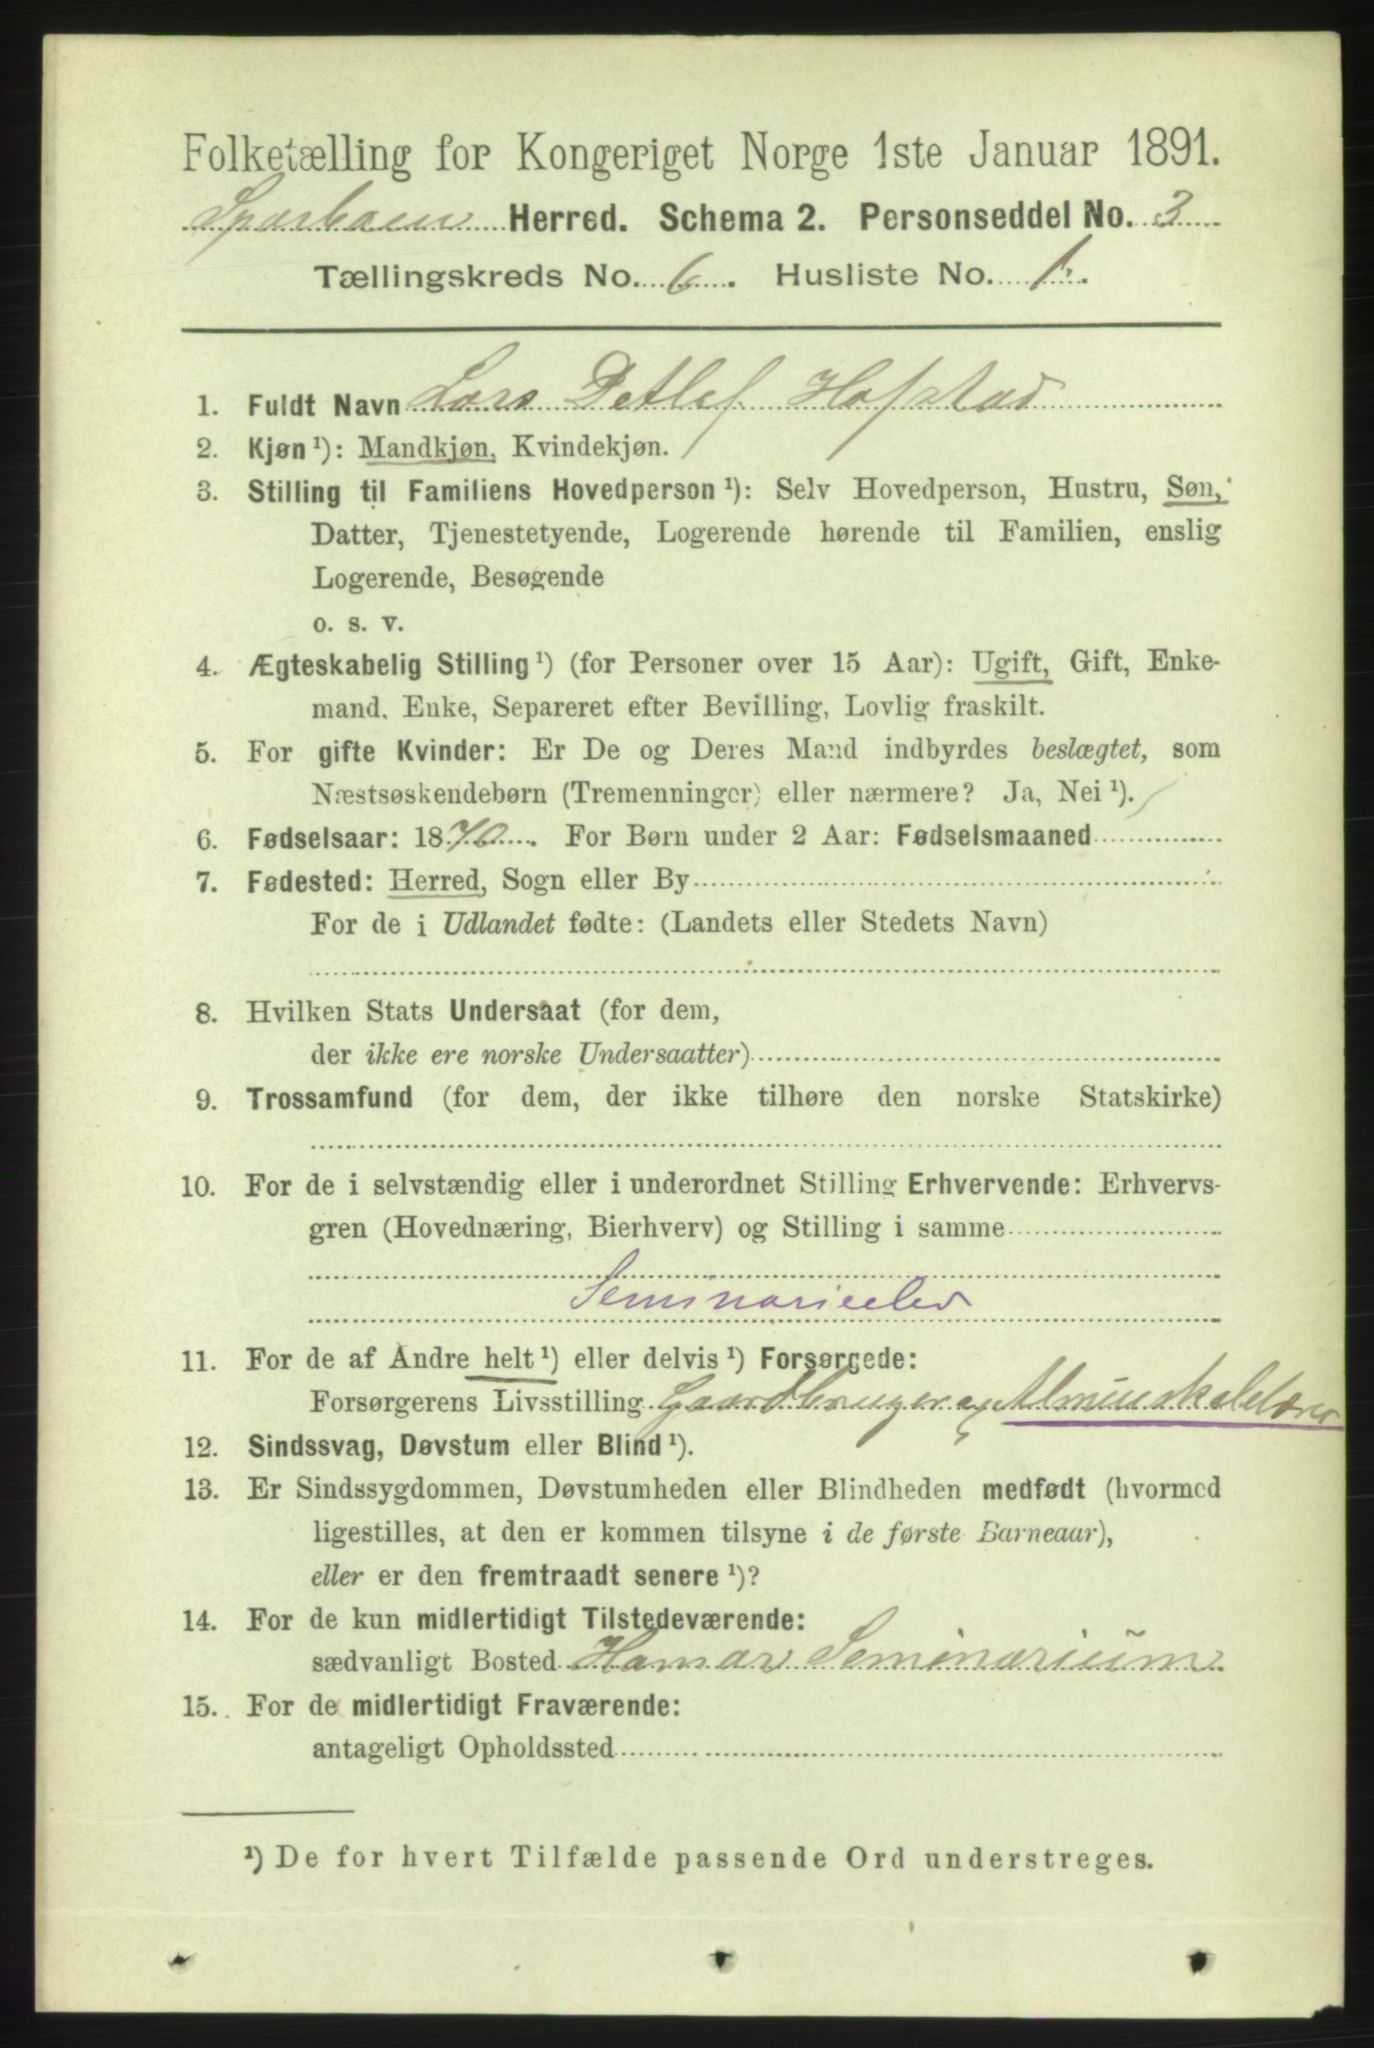 Folketælling for Kongeriget Norge 1ste Januar 1891.
Sparboen Herred. Schema 2. Personseddel No. 3
Tællingskreds No. 6. Husliste No. 1.
1. Fuldt Navn Lars Detlef Hofstad
2. Kjøn ¹): Mandkjøn, Kvindekjøn.
3. Stilling til Familiens Hovedperson ¹): Selv Hovedperson, Hustru, Søn,
Datter, Tjenestetyende, Logerende hørende til Familien, enslig
Logerende, Besøgende
o. s. v.
4. Ægteskabelig Stilling ¹) (for Personer over 15 Aar): Ugift, Gift, Enke-
mand, Enke, Separeret efter Bevilling, Lovlig fraskilt.
5. For gifte Kvinder: Er De og Deres Mand indbyrdes beslægtet, som
Næstsøskendebørn (Tremenninger) eller nærmere? Ja, Nei ¹).
6. Fødselsaar: 1870. For Børn under 2 Aar: Fødselsmaaned
7. Fødested: Herred, Sogn eller By
For de i Udlandet fødte: (Landets eller Stedets Navn)
8. Hvilken Stats Undersaat (for dem,
der ikke ere norske Undersaatter)
9. Trossamfund (for dem, der ikke tilhøre den norske Statskirke)
10. For de i selvstændig eller i underordnet Stilling Erhvervende: Erhvervs-
gren (Hovednæring, Bierhverv) og Stilling i samme
Seminarieelev
11. For de af Andre helt ¹) eller delvis ¹) Forsørgede:
Forsørgerens Livsstilling Gaardbruger og Almueskolelærer
12. Sindssvag, Døvstum eller Blind ¹).
13. Er Sindssygdommen, Døvstumheden eller Blindheden medfødt (hvormed
ligestilles, at den er kommen tilsyne i de første Barneaar),
eller er den fremtraadt senere ¹)?
14. For de kun midlertidigt Tilstedeværende:
sædvanligt Bosted Hamar Seminarium
15. For de midlertidigt Fraværende:
antageligt Opholdssted
¹) De for hvert Tilfælde passende Ord understreges.